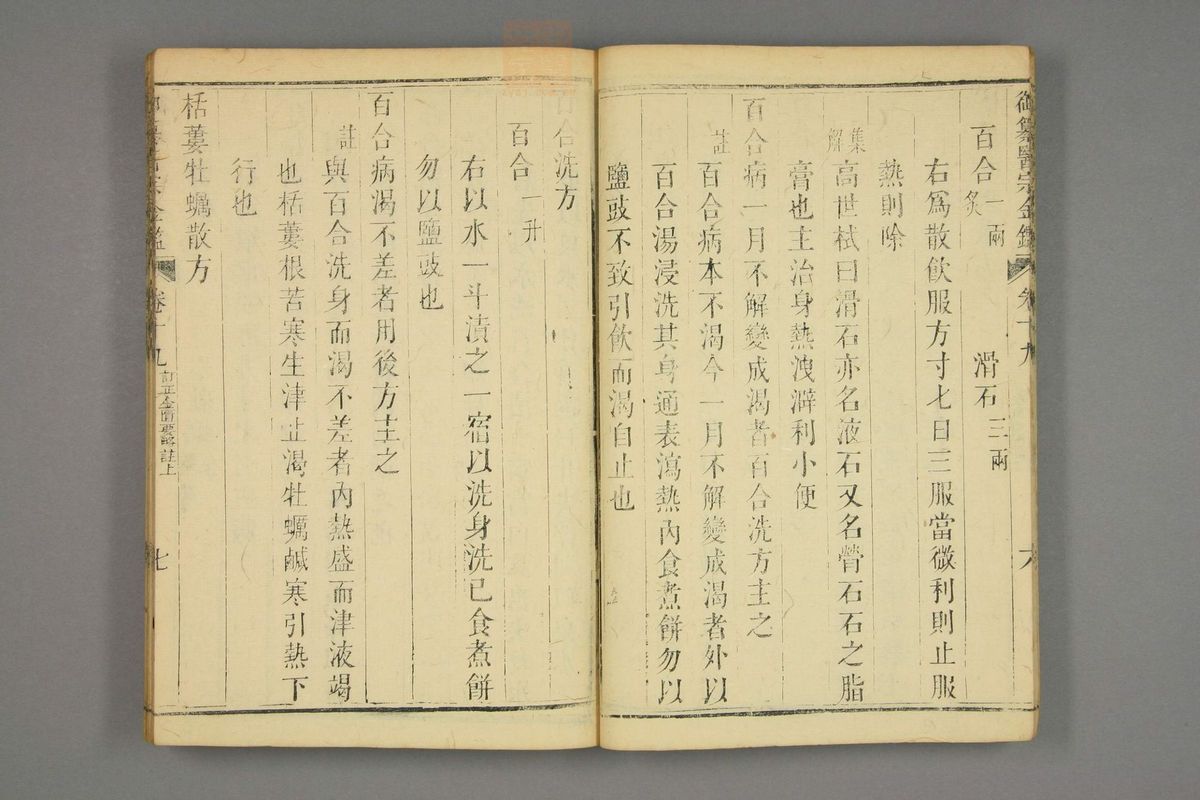 御纂醫宗金鑑 卷十九 六
百合一兩炙 滑石三兩
右爲散飲服方寸匕日三服當微利則止服
熱則除
集解高世栻曰滑石亦名液石又名膋石石之脂
膏也主治身熱洩澼利小便
百合病一月不解變成渴者百合洗方主之
註百合病本不渴今一月不解變成渴者外以
百合湯浸洗其身通表瀉熱內食煮餅勿以
鹽豉不致引飲而渴自止也
百合洗方
百合一升
右以水一斗漬之一宿以洗身洗已食煮餅
勿以鹽豉也
百合病渴不差者用後方主之
註與百合洗身而渴不差者內熱盛而津液竭
也栝蔞根苦寒生津止渴牡蠣鹹寒引熱下
行也
栝蔞牡蠣散方
金鑑 卷十九 訂正金匱要畧註上 七